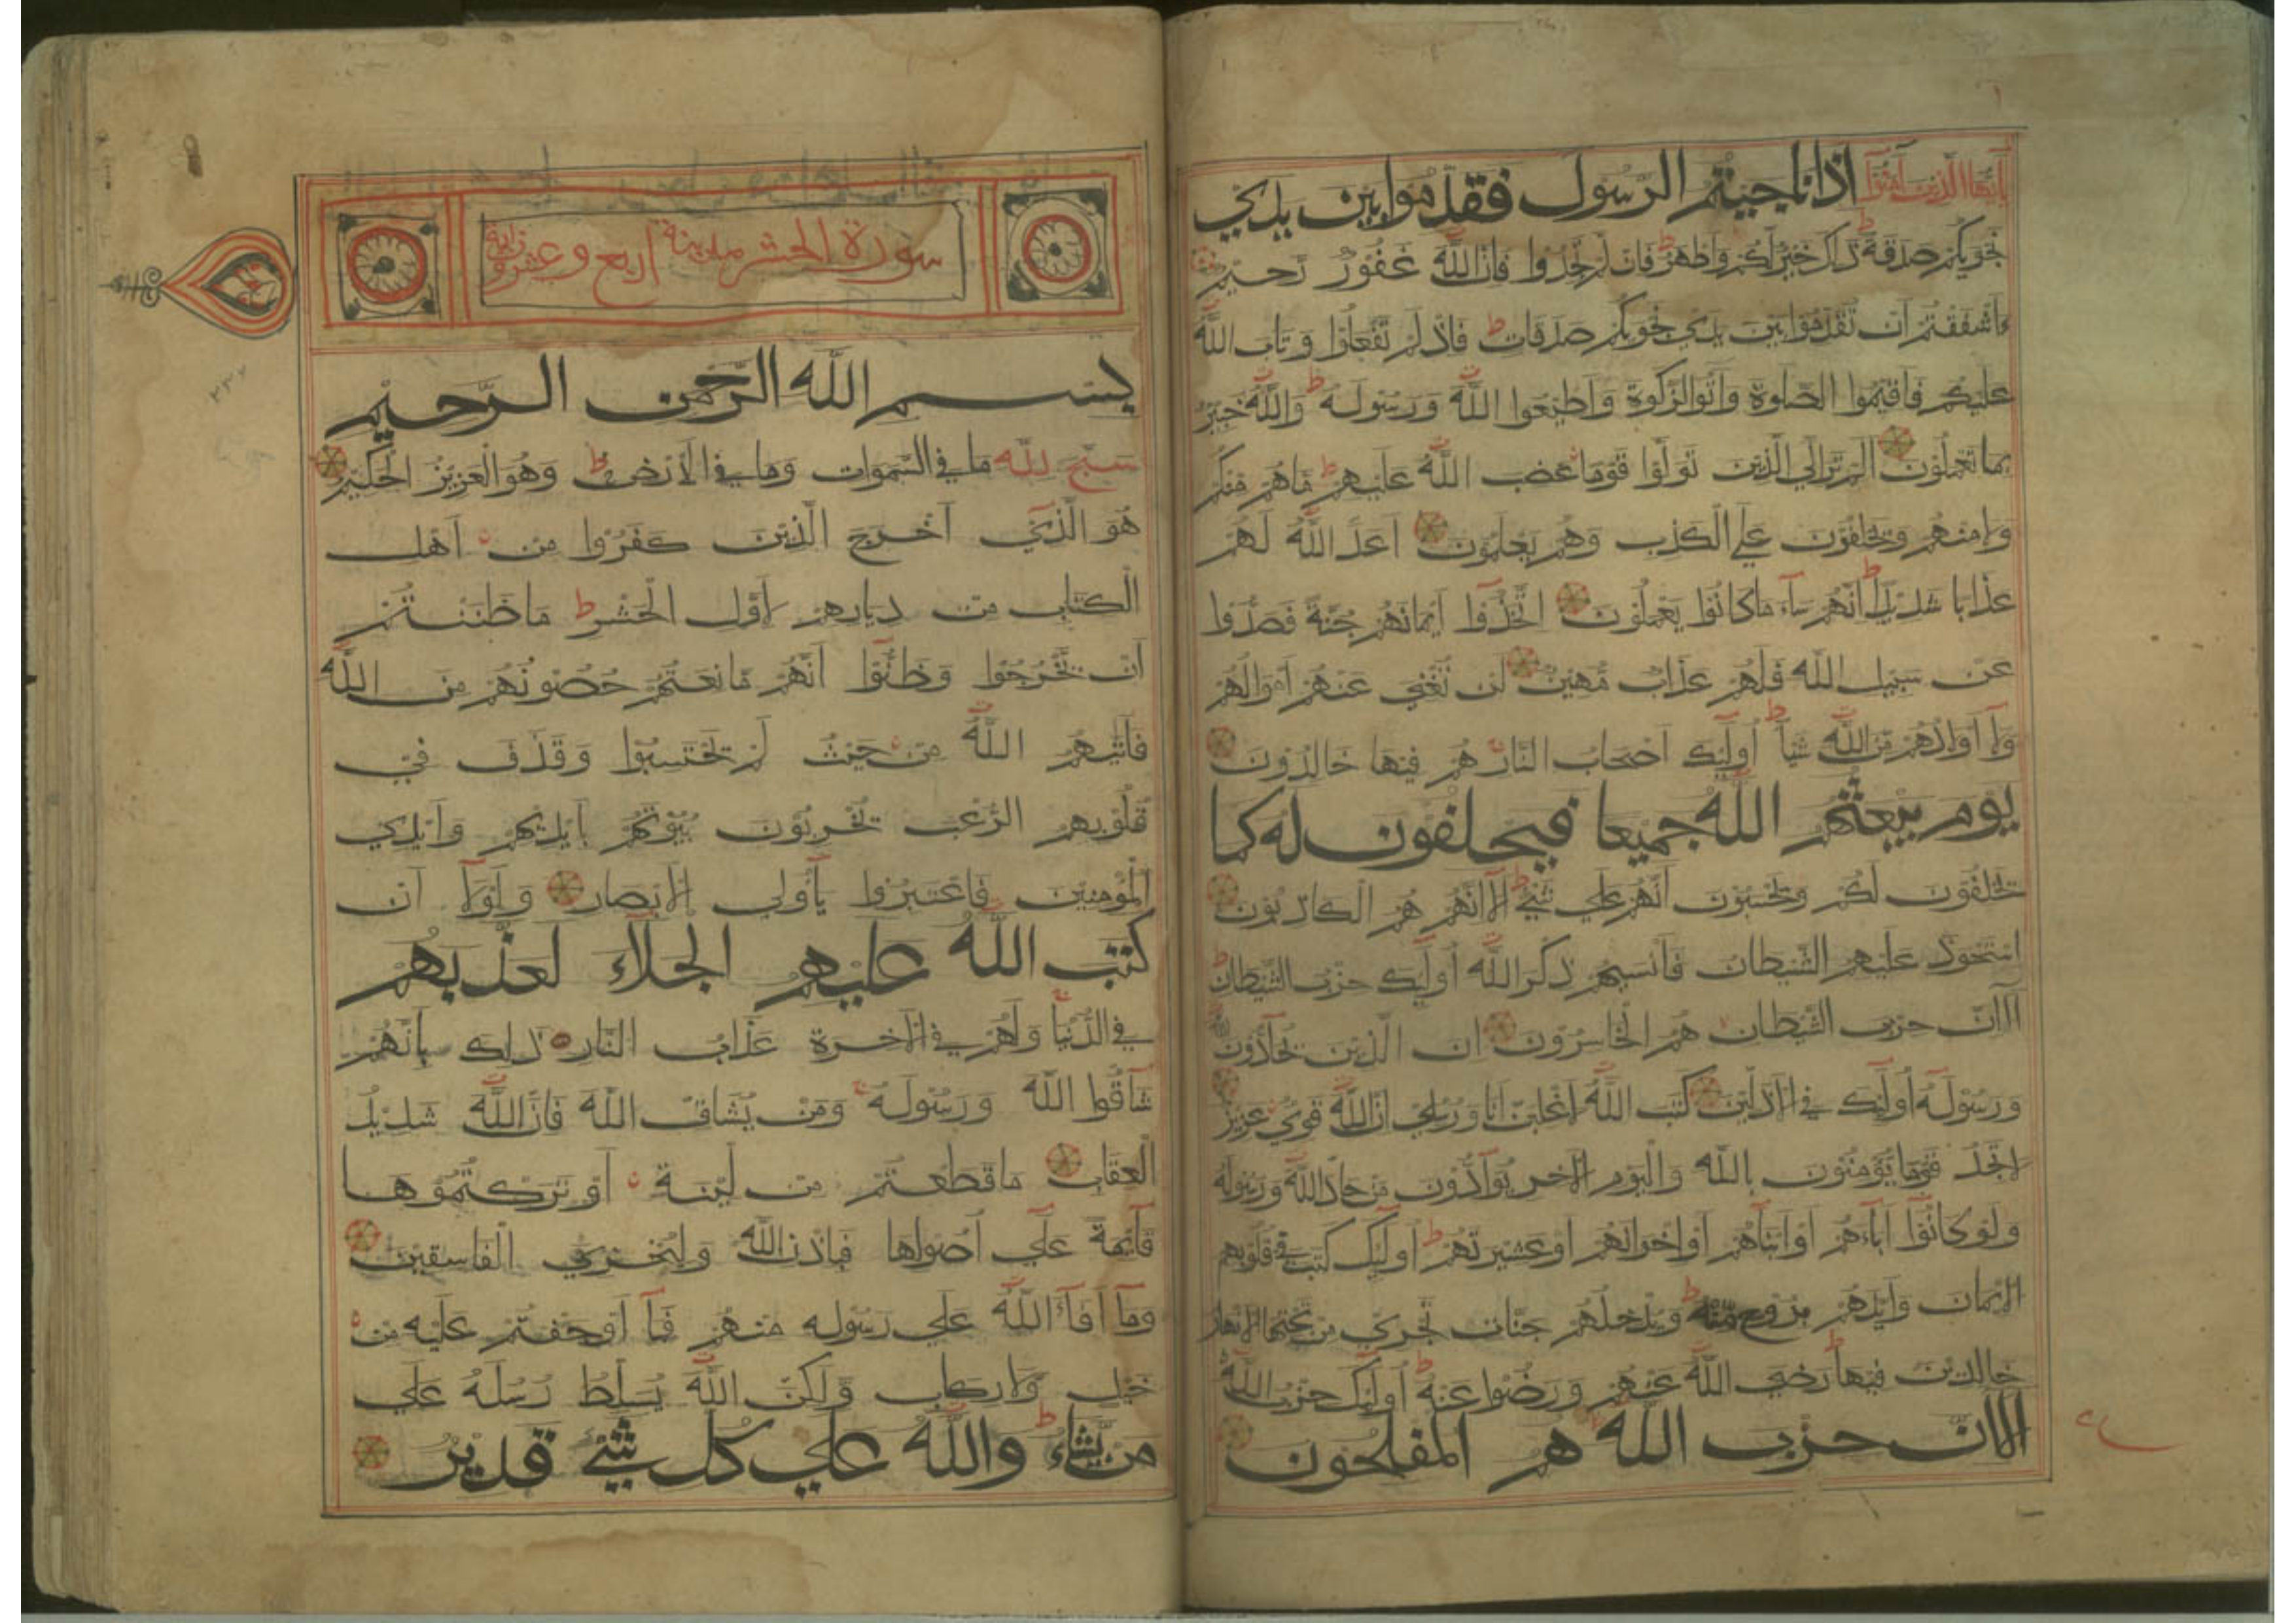 يا أيها الذين آمنوا اذا ناجيتم الرسول فقدموا بين يدي
نجويكم صدقة ذلك خير لكم واطهر فان لم تجدوا فان الله غفور رحيم
ءاشفقتم ان تقدموا بين يدي نجويكم صدقات فاذ لم تفعلوا وتاب الله
عليكم فاقيموا الصلوة واتوا الزكوة واطيعوا الله ورسوله والله خبير
بما تعملون الم تر الي الذين تولوا قوما غضب الله عليهم ما هم منكم
ولا منهم ويحلفون علي الكذب وهم يعلمون اعد الله لهم
عذابا شديدا انهم ساء ما كانوا يعملون اتخذوا ايمانهم جنة فصدوا
عن سبيل الله فلهم عذاب مهين لن تغني عنهم اموالهم
ولا اولادهم من الله شيا اولئك اصحاب النار هم فيها خالدون
يوم يبعثهم الله جميعا فيحلفون له كما
يحلفون لكم ويحسبون انهم علي شيء الا انهم هم الكاذبون
استحوذ عليهم الشيطان فانسيهم ذكر الله اولئك حزب الشيطان
الا ان حزب الشيطان هم الخاسرون ان الذين يحادون الله
ورسوله اولئك في الاذلين كتب الله لاغلبن انا ورسلي ان الله قوي عزيز
لا تجد قوما يؤمنون بالله واليوم الاخر يوادون من حاد الله ورسوله
ولو كانوا اباءهم او ابناءهم او اخوانهم او عشيرتهم اولئك كتب في قلوبهم
الايمان وايدهم بروح منه ويدخلهم جنات تجري من تحتها الانهار
خالدين فيها رضي الله عنهم ورضوا عنه اولئك حزب الله
الا ان حزب الله هم المفلحون
سورة الحشر مدينة اربع وعشرون اية
بسم الله الرحمن الرحيم
سبح لله ما في السموات وما في الارض وهو العزيز الحكيم
هو الذي اخرج الذين كفروا من اهل
الكتاب من ديارهم لاول الحشر ما ظننتم
ان يخرجوا وظنوا انهم مانعتهم حصونهم من الله
فاتيهم الله من حيث لم يحتسبوا وقذف في
قلوبهم الرعب يخربون بيوتهم بايديهم وايدي
المؤمنين فاعتبروا ياولي الابصار ولولا ان
كتب الله عليهم الجلاء لعذبهم
في الدنيا ولهم في الاخرة عذاب النار ذلك بانهم
شاقوا الله ورسوله ومن يشاق الله فان الله شديد
العقاب ما قطعتم من لينة او تركتموها
قائمة علي اصولها فباذن الله وليخزي الفاسقين
وما افاء الله علي رسوله منهم فما اوجفتم عليه من
خيل ولا ركاب ولكن الله يسلط رسله علي
من يشاء والله علي كل شيء قدير